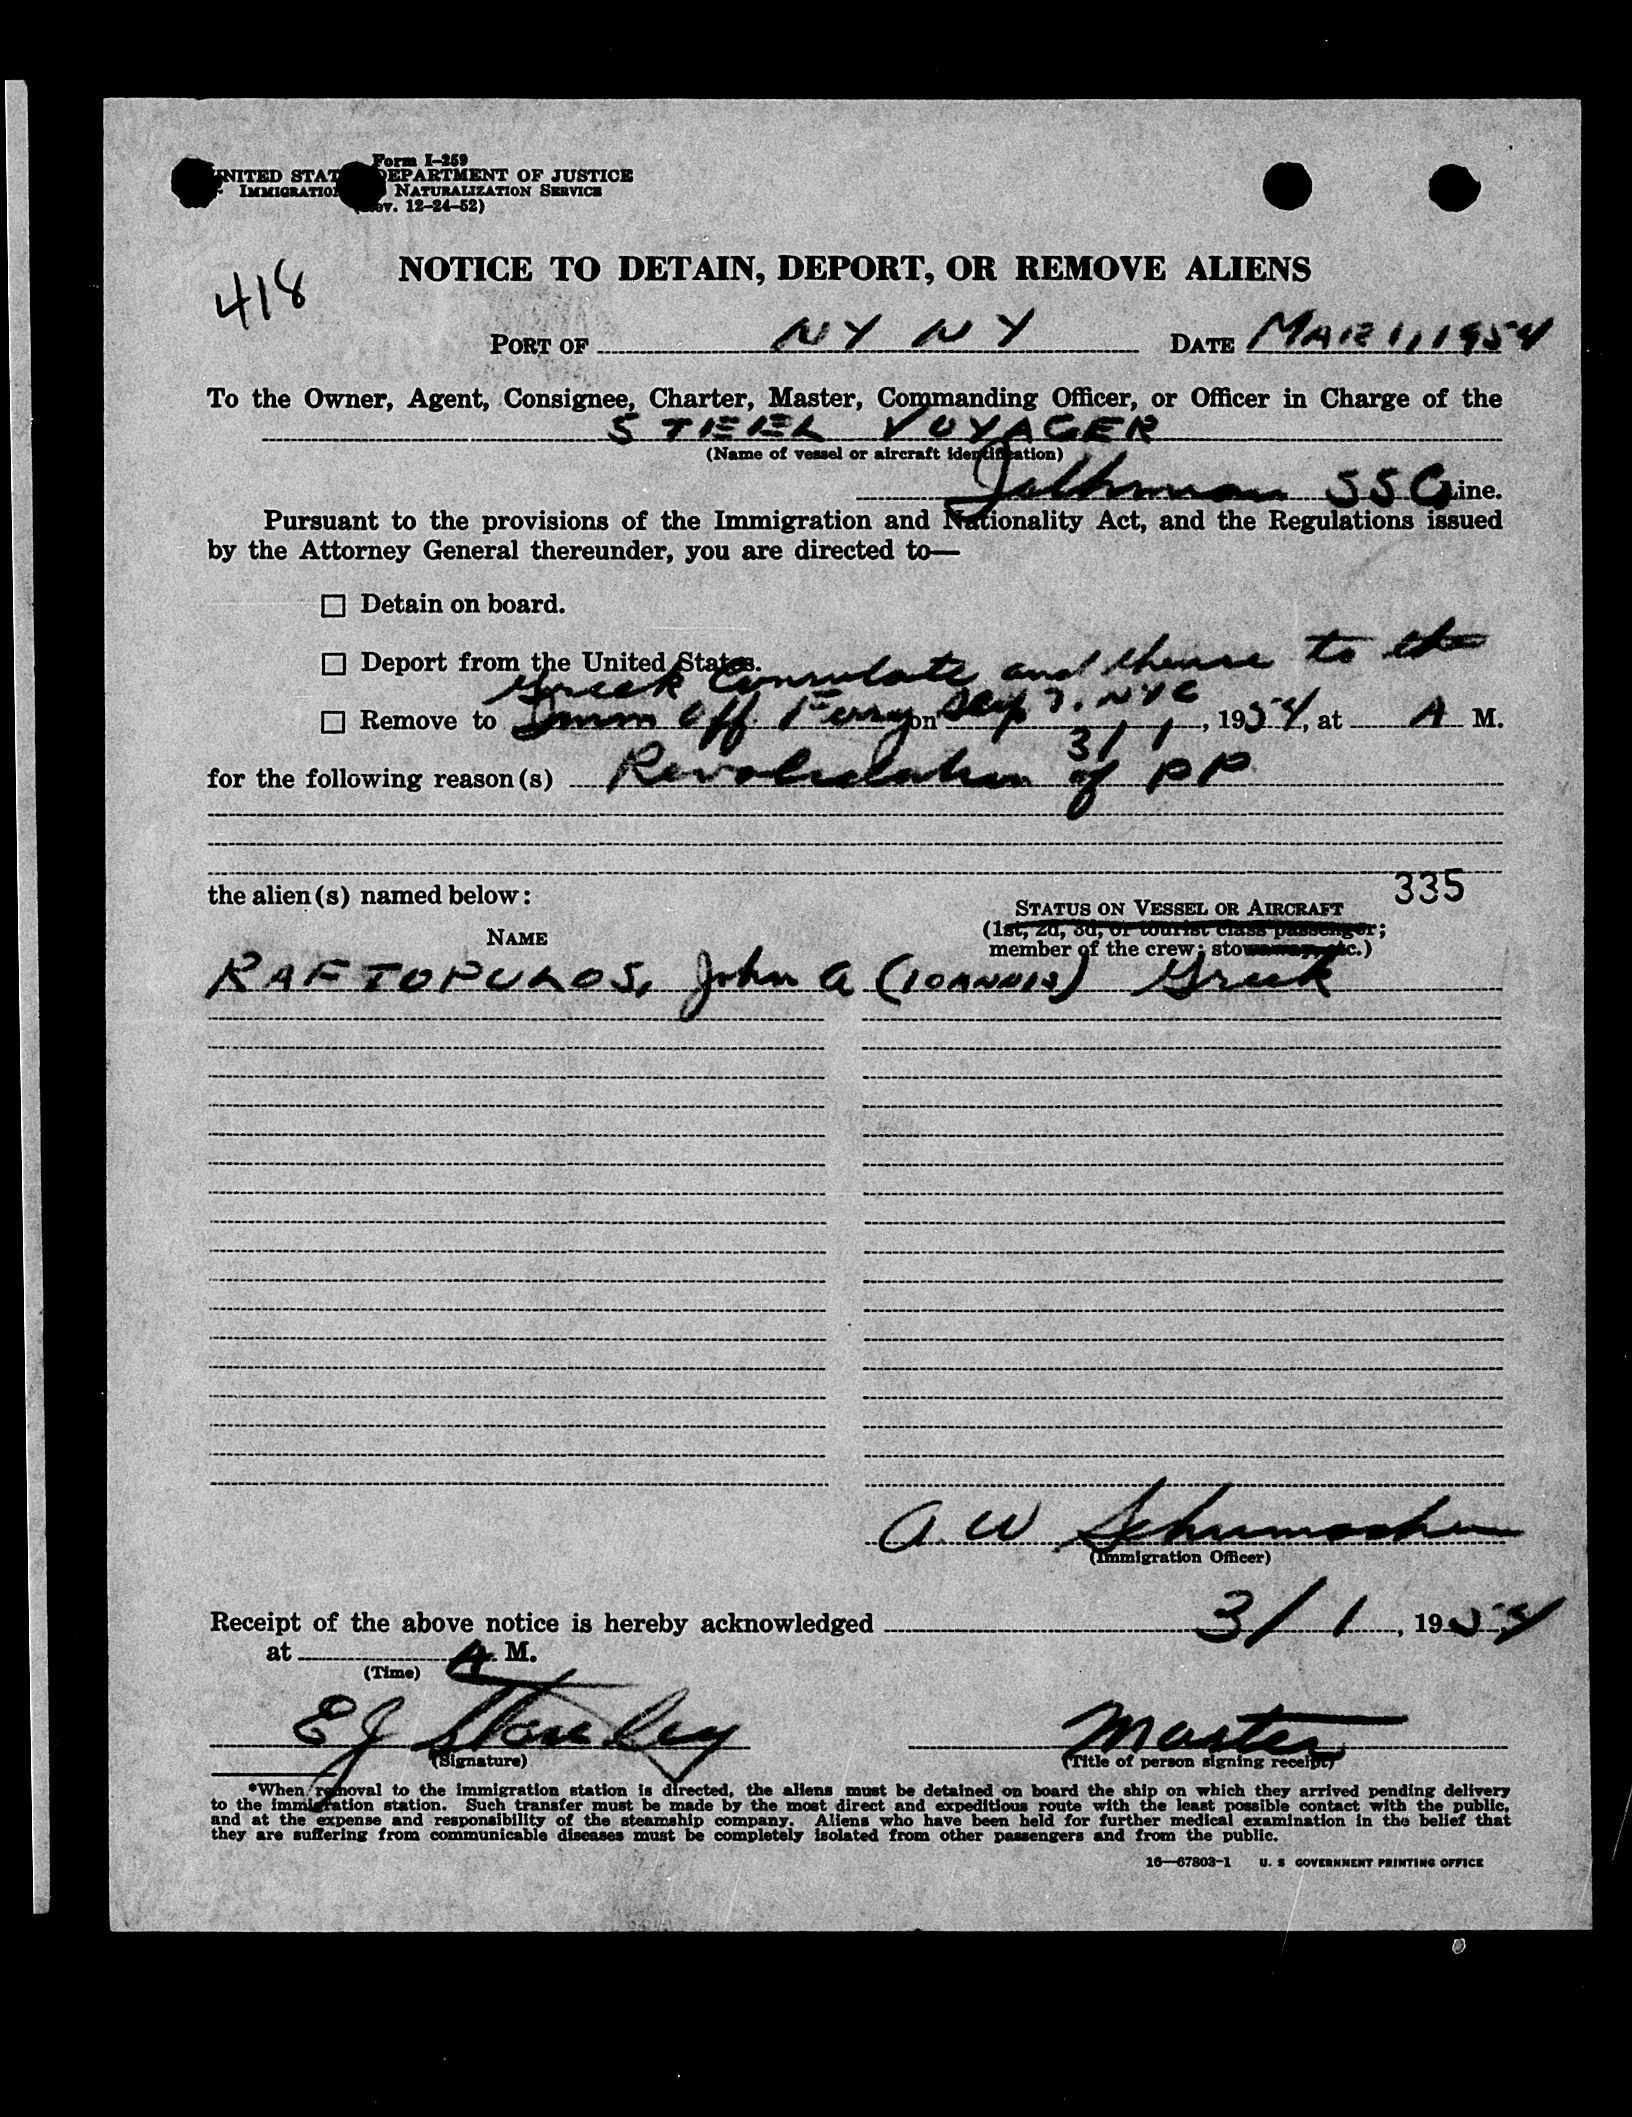 Form I-259
UNITED STAT DEPARTMENT OF JUSTICE
IMMIGRATIO NATURALIZATION SERVICE
ev. 12-24-52)
418
NOTICE TO DETAIN, DEPORT, OR REMOVE ALIENS
PORT OF NY NY DATE MAR 1, 1954
To the Owner, Agent, Consignee, Charter, Master, Commanding Officer, or Officer in Charge of the
STEEL VOYAGER
(Name of vessel or aircraft identification)
SS Co Line.
Pursuant to the provisions of the Immigration and Nationality Act, and the Regulations issued
by the Attorney General thereunder, you are directed to—
Detain on board.
Deport from the United States.
Greek Consulate and thence to the
Remove to Imm Off. Ferry Slip 7. NYC on 3/1, 1954, at A M.
for the following reason(s) Revalidation of PP
the alien(s) named below:
335
STATUS ON VESSEL OR AIRCRAFT
(1st, 2d, 3d, or tourist class passenger;
NAME
member of the crew; stowaway, etc.)
RAFTOPULOS, John A (IOANNIS) Greek
A. W Schumacher
(Immigration Officer)
Receipt of the above notice is hereby acknowledged 3/1, 1954
at A. M.
(Time)
E J Stanley Master
(Signature) (Title of person signing receipt)
*When removal to the immigration station is directed, the aliens must be detained on board the ship on which they arrived pending delivery
to the immigration station. Such transfer must be made by the most direct and expeditious route with the least possible contact with the public,
and at the expense and responsibility of the steamship company. Aliens who have been held for further medical examination in the belief that
they are suffering from communicable diseases must be completely isolated from other passengers and from the public.
16—67803-1 U. S GOVERNMENT PRINTING OFFICE